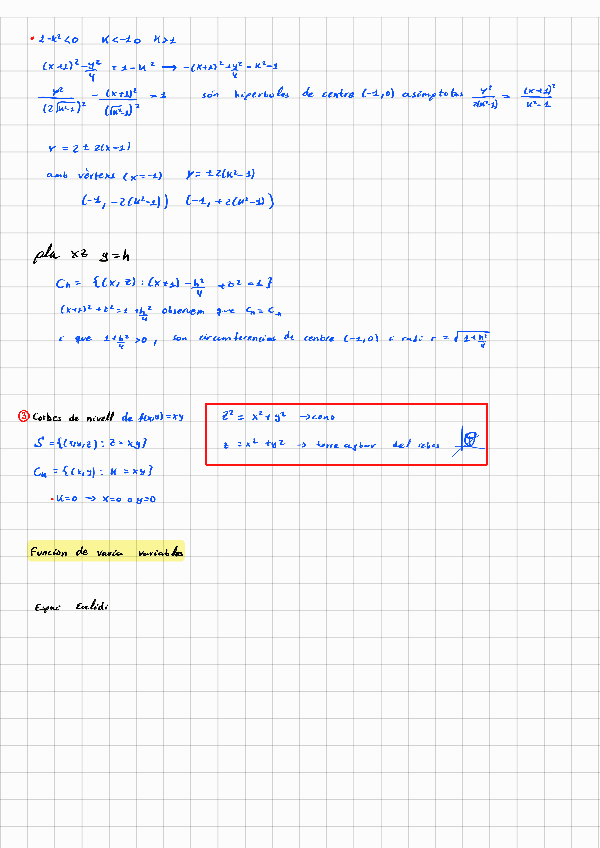 • 1-k²<0 k<-1 o k>1
(x+1)² - y²/4 = 1-k² → -(x+1)² + y²/4 = k²-1
y²/(2√k²-1)² - (x+1)²/(√k²-1)² = 1 són hiperboles de centre (-1,0) asímptotas y²/2(k²-1) = (x+1)²/k²-1
y = 2 ± 2(x-1)
amb vèrtexs (x=-1) y = ±2(k²-1)
(-1, -2(k²-1)) (-1, +2(k²-1))
pla xz y=h
Ch = {(x,z) : (x+1) - h²/4 + z² = 1}
(x+1)² + z² = 1 + h²/4 observem que Ch = C-h
i que 1+h²/4 >0, son circumferencies de centre (-1,0) i radi r = √1+h²/4
③ Corbes de nivell de f(x,y)=xy
S = {(x,y,z) : z = xy}
Ck = {(x,y) : k = xy}
• k=0 → x=0 o y=0
z² = x² + y² → cono
z = x² + y² →
Funcion de varia variables
Espai Euclidi